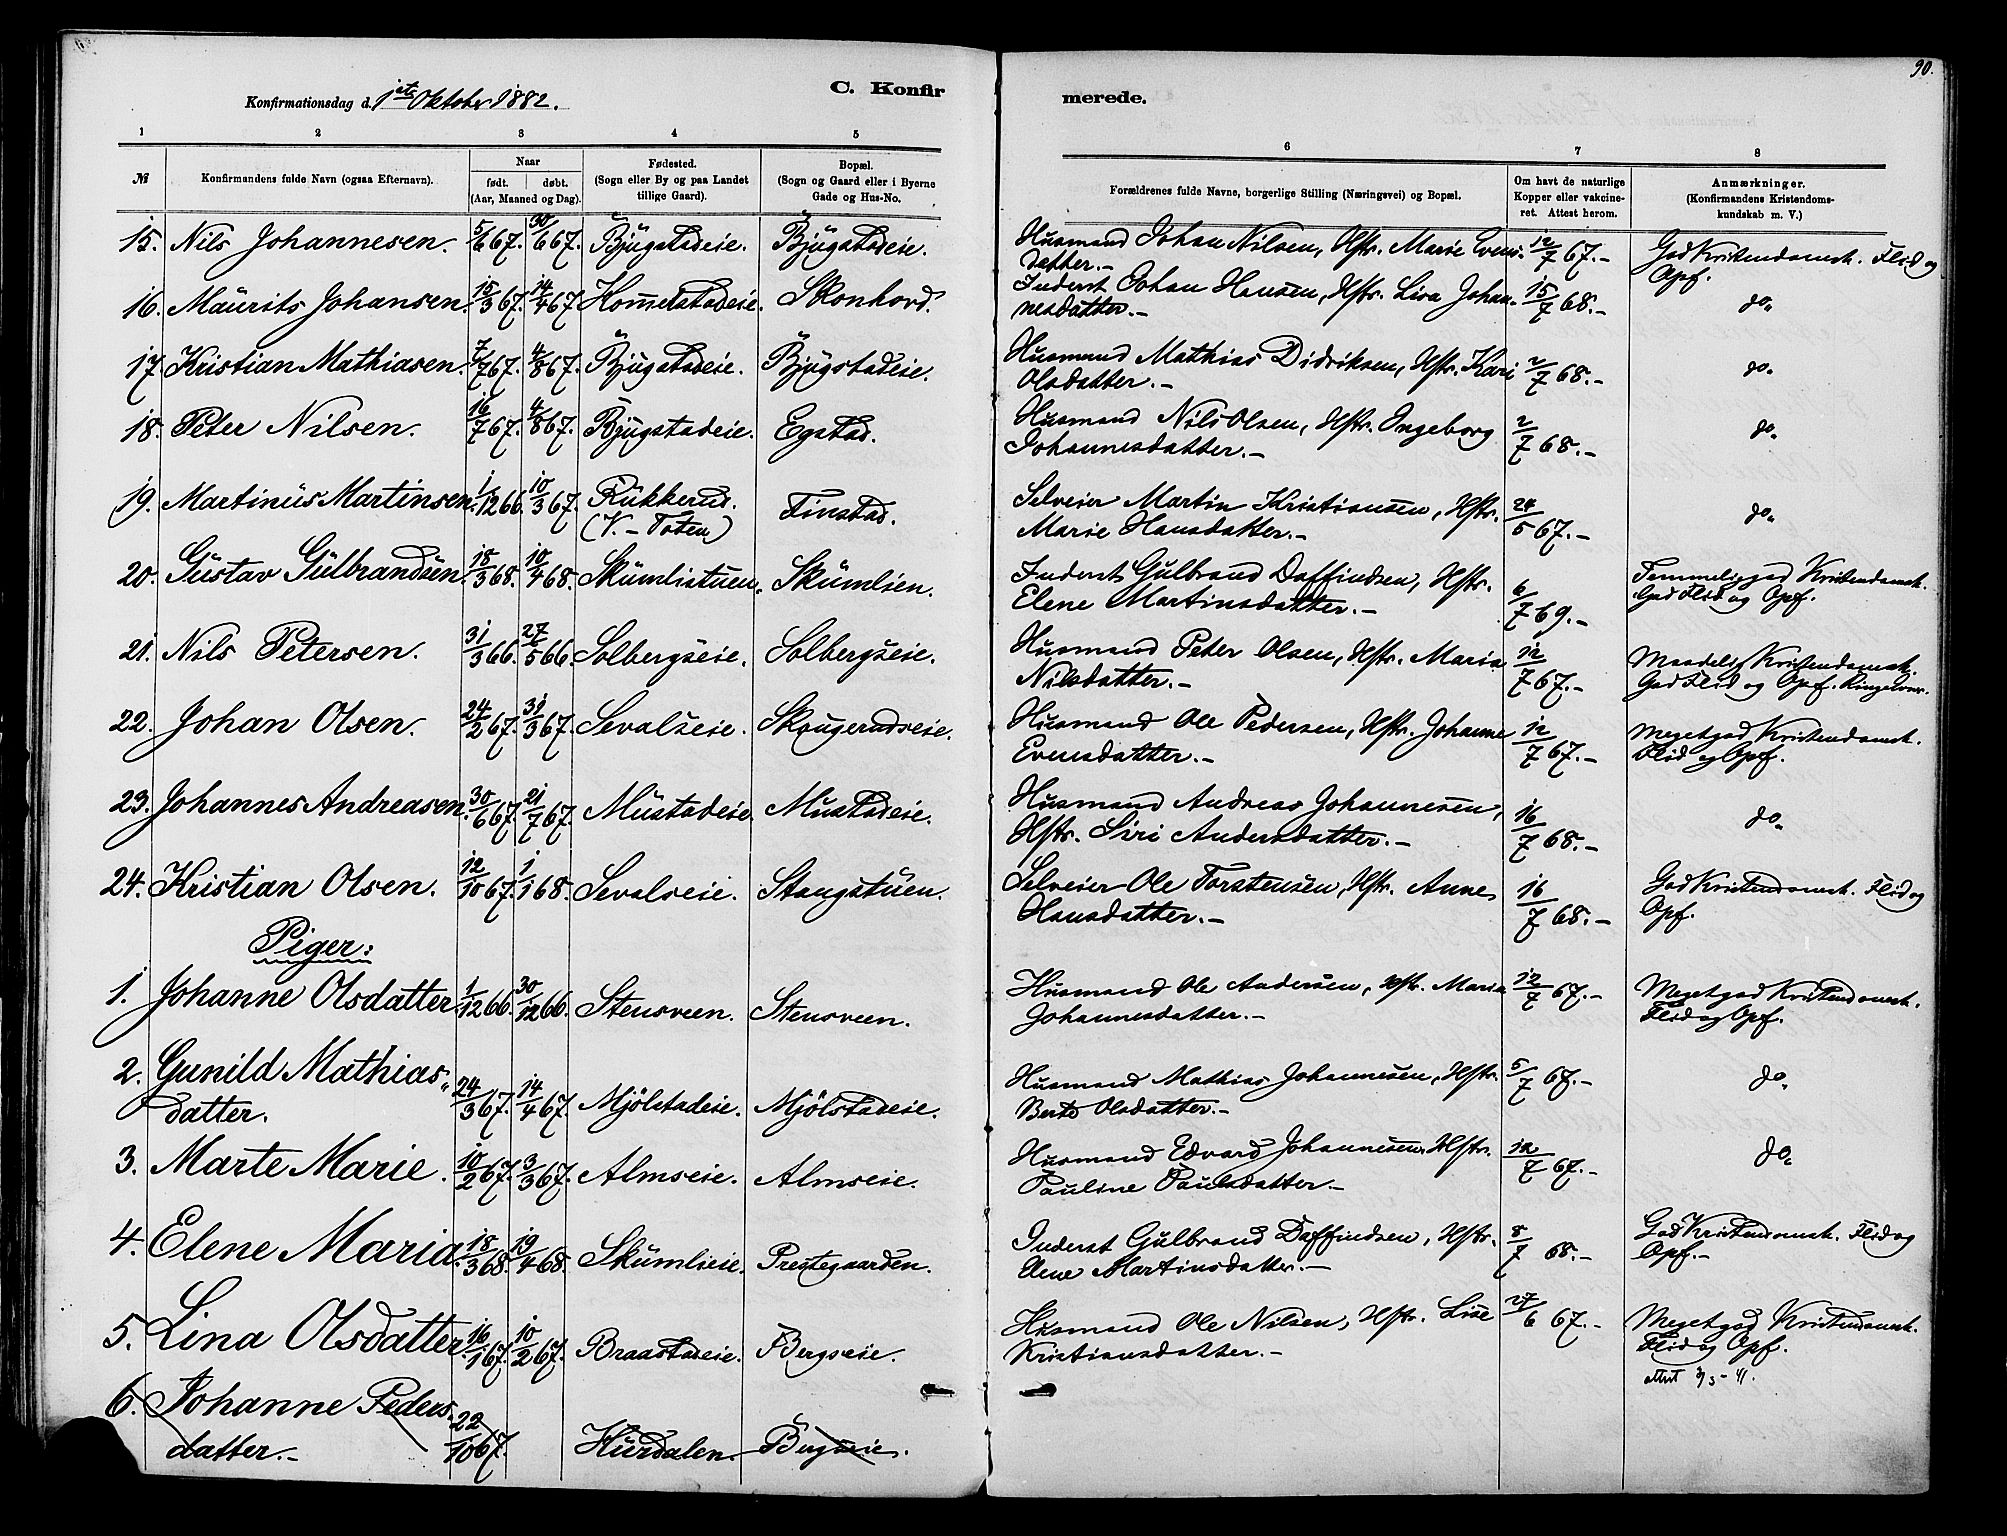 90.
Konfirmationsdag d. 1ste Oktober 1882.
C. Konfirmerede.
1 2 3 4 5 6 7 8
№ Konfirmandens fulde Navn (ogsaa Efternavn). Naar født. døbt. (Aar, Maaned og Dag). Fødested. (Sogn eller By og paa Landet tillige Gaard). Bopæl. (Sogn og Gaard eller i Byerne Gade og Hus-No. Forældrenes fulde Navne, borgerlige Stilling (Næringsvei) og Bopæl. Om havt de naturlige Kopper eller vakcineret. Attest herom. Anmærkninger. (Konfirmandens Kristendomskundskab m. V.)
15. Nils Johannesen. 5/6 67. 30/6 67. Bjügstadeie. Bjügstadeie. Husmand Johan Nilsen, Hstr. Marie Evens- 12/7 67.- God Kristendomsk. Flid og
datter.- Opf.
16. Maurits Johansen. 15/3 67. 14/4 67. Hommelstadeie. Skonhovd. Inderst Johan Hansen, Hstr. Lisa Johan- 15/7 68.- do.
nesdatter.-
17. Kristian Mathiasen. 7/7 67. 4/8 67. Bjügstadeie. Bjügstadeie. Husmand Mathias Didriksen, Hstr. Kari 2/7 68.- do.
Olsdatter.-
18. Peter Nilsen. 16/7 67. 4/8 67. Bjügstadeie. Egstad. Husmand Nils Olsen, Hstr. Ingeborg 2/7 68.- do.
Johannesdatter.-
19. Martinüs Martinsen. 1/12 66. 10/3 67. Rükkerud. Finstad. Selveier Martin Kristiansen, Hstr. 24/5 67.- do.
(V.-Toten) Marie Hansdatter.-
20. Güstav Gülbrandsen. 18/3 68. 10/4 68. Skümlistuen. Skümlien. Inderst Gulbrand Daffindsen, Hstr. 6/7 69.- Temmelig god Kristendomsk.
Elene Martinsdatter.- God Flid og Opf.
21. Nils Petersen. 31/3 66. 27/5 66. Solbergseie. Solbergseie. Husmand Peter Olsen, Hstr. Maria 12/7 67.- Maadelig Kristendomsk.
Nilsdatter.- God Flid og Opf.
22. Johan Olsen. 24/2 67. 31/3 67. Sevalseie. Skougerudseie. Husmand Ole Pedersen, Hstr. Johanne 12/7 67.- Meget god Kristendomsk.
Evensdatter.- Flid og Opf.
23. Johannes Andreasen. 30/6 67. 21/7 67. Müstadeie. Mustadeie. Husmand Andreas Johannesen, 16/7 68.- do.
Hstr. Siri Andersdatter.-
24. Kristian Olsen. 12/10 67. 1/1 68. Sevalseie. Stangstüen. Selveier Ole Torstensen, Hstr. Anne 16/7 68.- God Kristendomsk. Flid og
Hansdatter.- Opf.
Piger:
1. Johanne Olsdatter. 1/12 66. 30/12 66. Stensveen. Stensveen. Husmand Ole Andersen, Hstr. Maria 12/7 67.- Meget god Kristendomsk.
Johannesdatter.- Flid og Opf.
2. Gunild Mathias- Husmand Mathias Johannesen, Hstr. 5/7 67.- do.
datter. 24/3 67. 14/4 67. Mjölstadeie. Mjölstadeie. Berte Olsdatter.-
3. Marte Marie. 10/2 67. 3/3 67. Almseie. Almseie. Husmand Edvard Johannesen, Hstr. 12/7 67.- do.
Pauline Paulsdatter.-
4. Elene Maria. 18/3 68. 19/4 68. Skümlieie. Prestegaarden. Inderst Gulbrand Daffindsen, Hstr. 8/7 68.- God Kristendomsk. Flid og
Elene Martinsdatter.- Opf.-
5. Lina Olsdatter. 16/1 67. 10/2 67. Braastadeie. Bergseie. Husmand Ole Nilsen, Hstr. Lise 27/6 67.- Meget god Kristendomsk.
Kristiansdatter.- Flid og Opf.
6. Johanne Peders-
datter.- 22/10 67. Hürdalen. Bergseie.